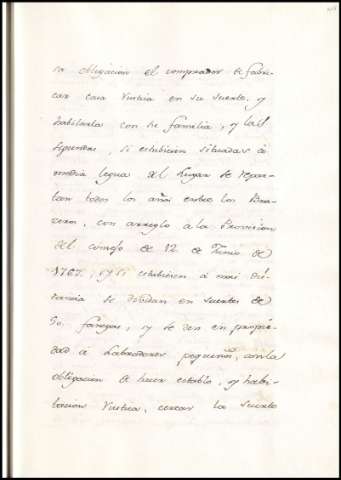 la obligacion el comprador de fabri-
car casa rustica en su suerte, y
habitarla con su familia, y las
segundas, si estubiesen situadas á
media legua del Lugar se repar-
tan todos los años entre los Bra-
zeros, con arreglo a la Provision
del consejo de 12 de Junio de
1767. y si estubiesen á mas dis-
tancia se dividan en suertes de
50. fanegas, y se den en propie-
dad á Labradores pequeños, con la
obligacion de hacer establo, y habi-
tacion rustica, cercar la suerte